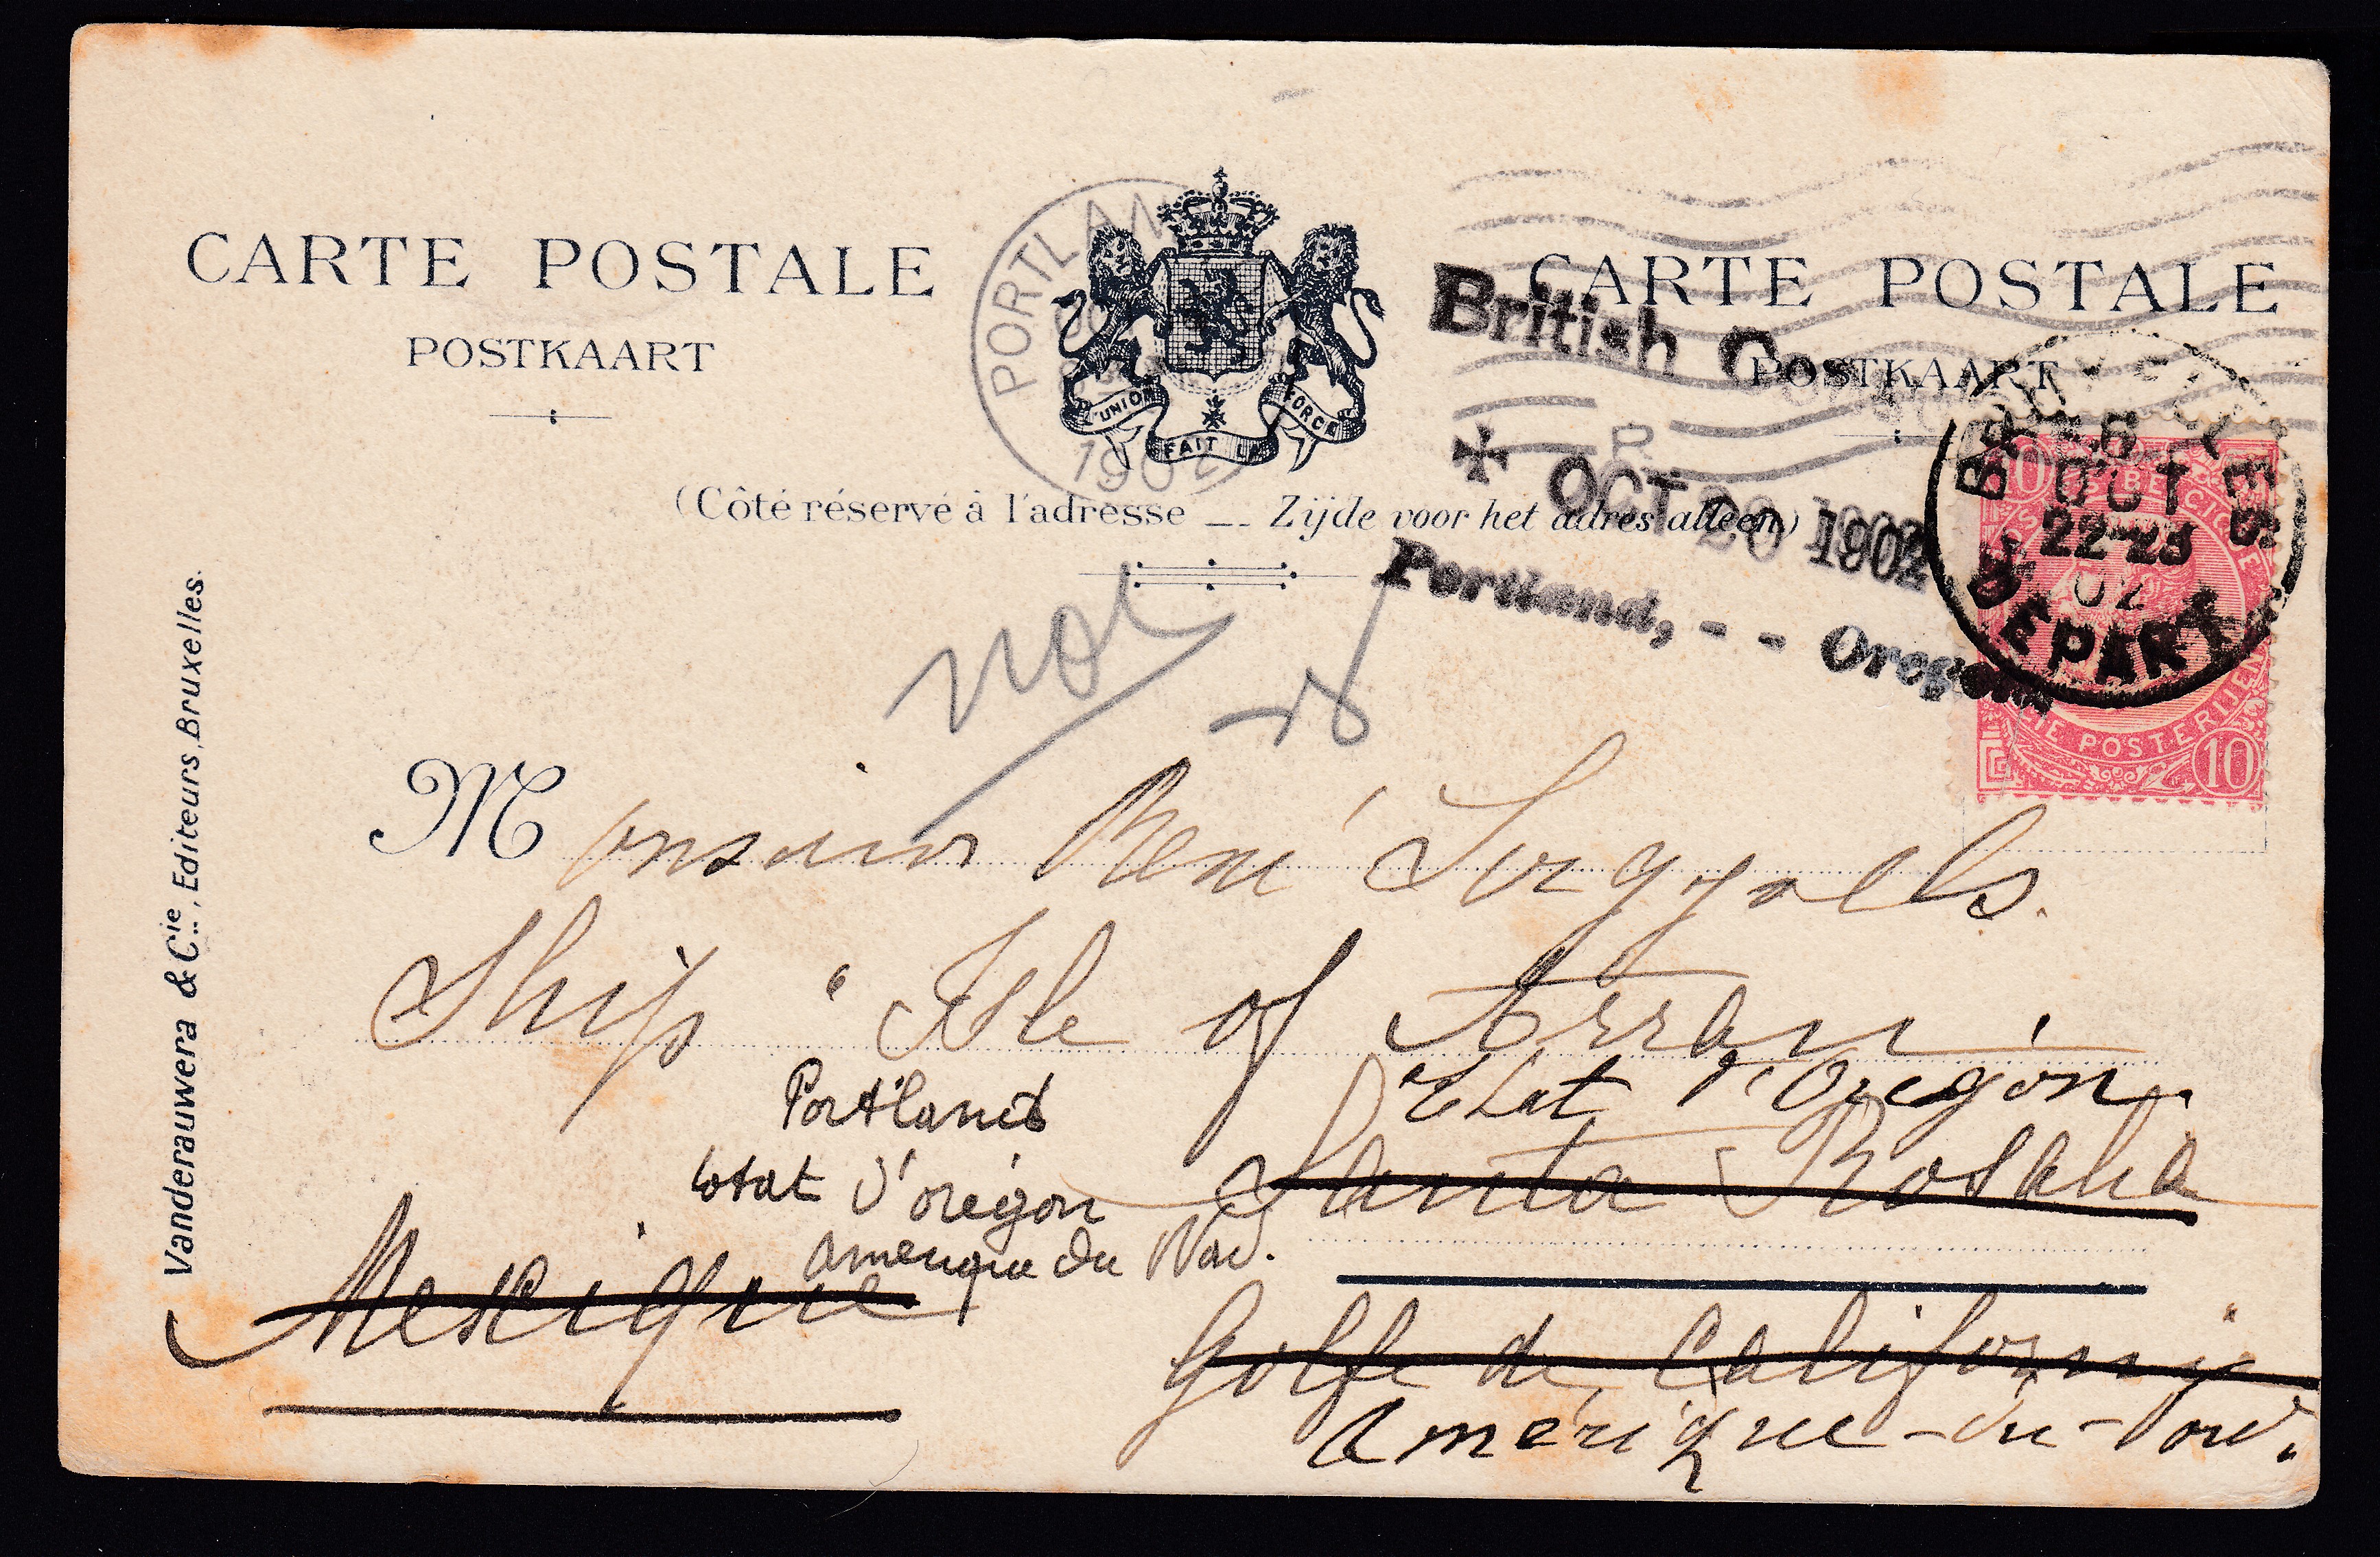 CARTE POSTALE
POSTKAART
CARTE POSTALE
POSTKAART
PORTLAN
1902
L'UNION FAIT LA FORCE
British Con
OCT 20 1902
Portland, - - Oregon
BRUXELLES
6
OCT
22-23
02
DEPART
10
10
(Côté réservé à l'adresse — Zijde voor het adres alleen)
Vanderauwera & Cie, Editeurs, Bruxelles.
not
Monsieur René
Ship "Isle of Arran
Portland
Etat d'Oregon.
Etat d'orégon
Santa Rosalia
amérique du Nord.
Mexique
Golfe de Californie
Amérique-du-Nord.